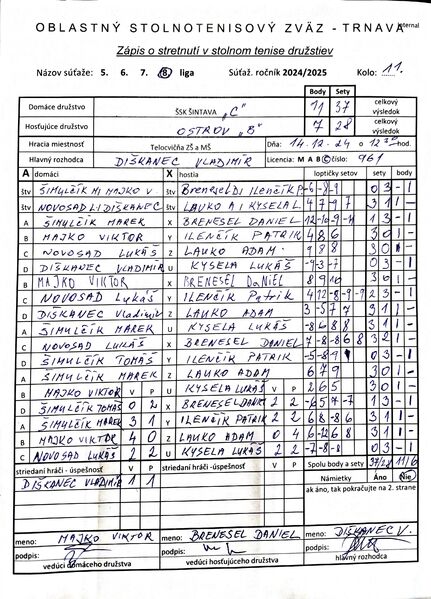 Internal
OBLASTNÝ STOLNOTENISOVÝ ZVÄZ - TRNAVA
Zápis o stretnutí v stolnom tenise družstiev
Názov súťaže: 5. 6. 7. 8. liga Súťaž. ročník 2024/2025 Kolo: 11.
Body Sety
Domáce družstvo ŠSK ŠINTAVA "C" 11 37 celkový výsledok
Hosťujúce družstvo OSTROV "B" 7 28 celkový výsledok
Hracia miestnosť Telocvičňa ZŠ a MŠ Dňa: 14.12.24 o 12 30 hod
Hlavný rozhodca DIŠKANEC VLADIMÍR Licencia: M A B C číslo: 961
A domáci X hostia loptičky setov sety body
štv ŠIMULČÍK M MAJKO V štv BRENESEL D ILENČÍK P -6-8-9 0 3 - 1
štv NOVOSAD L DIŠKANEC štv LAUKO A KYSELA L 4 7 9 7 3 1 1 -
A ŠIMULČÍK MAREK X BRENESEL DANIEL 1 3 - 1
B MAJKO VIKTOR Y ILENČÍK PATRIK 4 8 6 3 0 1 -
C NOVOSAD LUKÁŠ Z LAUKO ADAM 3 0 1
D DIŠKANEC VLADIMÍR U KYSELA LUKÁŠ -9-3-7 0 3 - 1
B MAJKO VIKTOR X BRENESEL DANIEL 8 9 10 3 0 1 -
C NOVOSAD LUKÁŠ Y ILENČÍK PATRIK 4 12 -8-9-9 2 3 - 1
D DIŠKANEC Vladimír Z LAUKO ADAM 3 -5 7 7 3 1 1 -
A ŠIMULČÍK MAREK U KYSELA LUKÁŠ -8 6 8 8 3 1 1 -
C NOVOSAD LUKÁŠ X BRENESEL DANIEL 7 -8 -8 6 8 3 2 1 -
D ŠIMULČÍK TOMÁŠ Y ILENČÍK PATRIK -5-8-9 0 3 - 1
A ŠIMULČÍK MAREK Z LAUKO ADAM 6 7 9 3 0 1 -
B MAJKO VIKTOR V P U KYSELA LUKÁŠ V P 2 6 5 3 0 1 -
D ŠIMULČÍK TOMÁŠ 0 2 X BRENESEL DANIEL 2 2 -6 5 -7 -7 1 3 - 1
A ŠIMULČÍK MAREK 3 1 Y ILENČÍK PATRIK 2 2 6 8 -8 6 3 1 1 -
B MAJKO VIKTOR 4 0 Z LAUKO ADAM 0 4 6 -12 6 8 3 1 1 -
C NOVOSAD LUKÁŠ 2 2 U KYSELA LUKÁŠ 2 2 -7-8-8 0 3 - 1
striedaní hráči - úspešnosť V P striedaní hráči - úspešnosť V P Spolu body a sety 37/28 11/6
DIŠKANEC VLADIMÍR 1 1 Námietky Áno Nie
ak áno, tak pokračujte na 2. strane
meno: MAJKO VIKTOR meno: BRENESEL DANIEL meno: DIŠKANEC V.
podpis: podpis: podpis:
vedúci domáceho družstva vedúci hosťujúceho družstva hlavný rozhodca